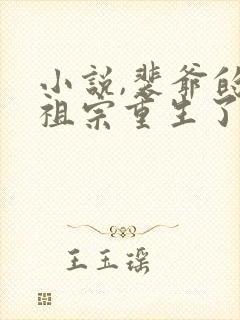 小说,裴爷的
祖宗重生了
王玉瑶